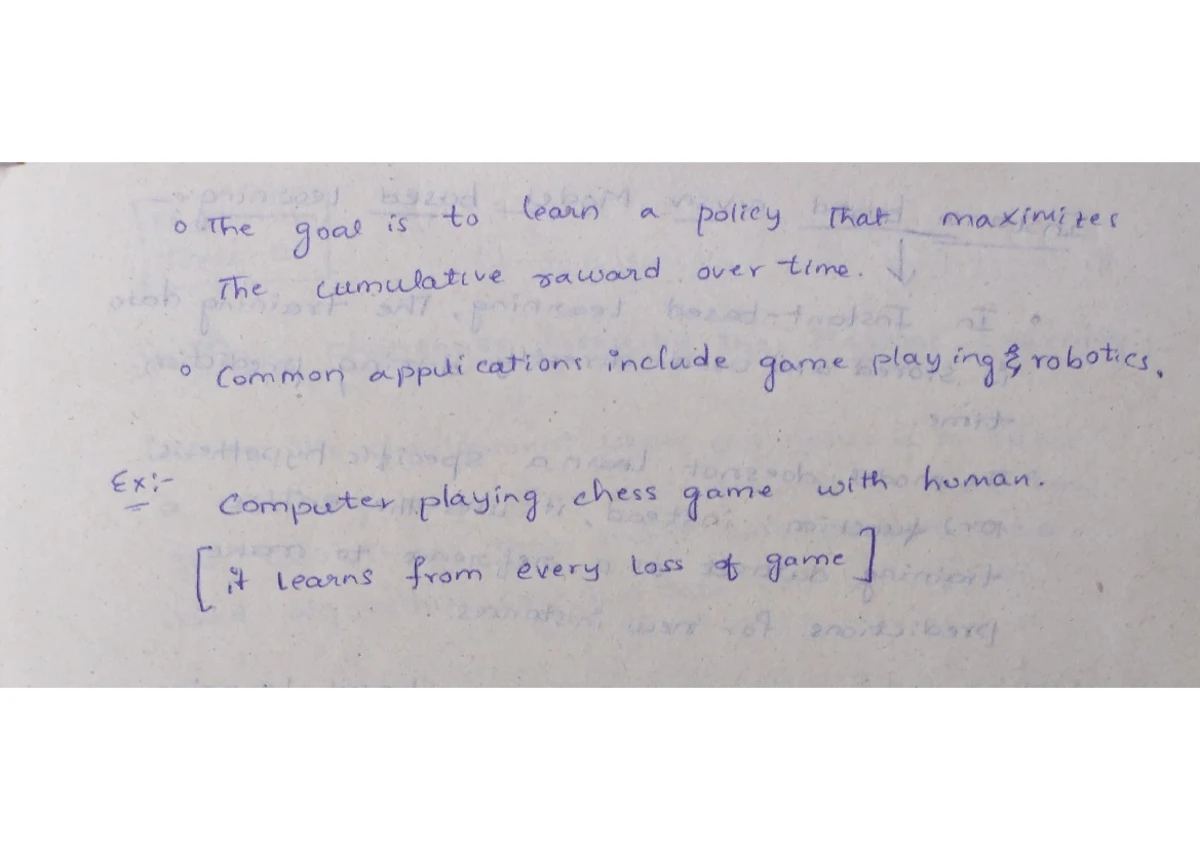 o The goal is to learn a policy That maximizes
The cumulative raward over time.
o Common applications include game playing & robotics.
Ex:-
Computer playing chess game with human.
[it learns from every loss of game]